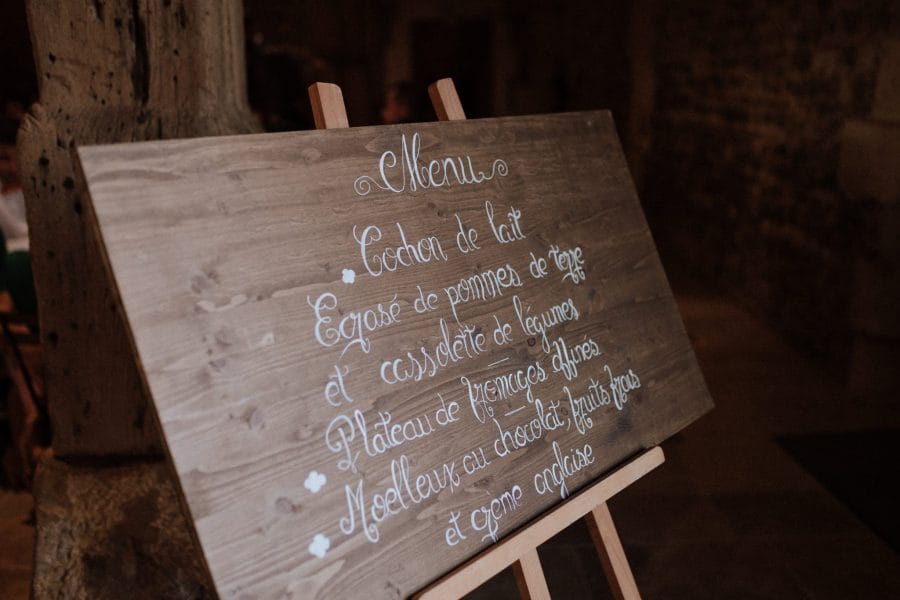 Menu
Cochon de lait
Ecrasé de pommes de terre
et cassolette de légumes
Plateau de fromages affinés
Moelleux au chocolat, fruits frais
et crème anglaise